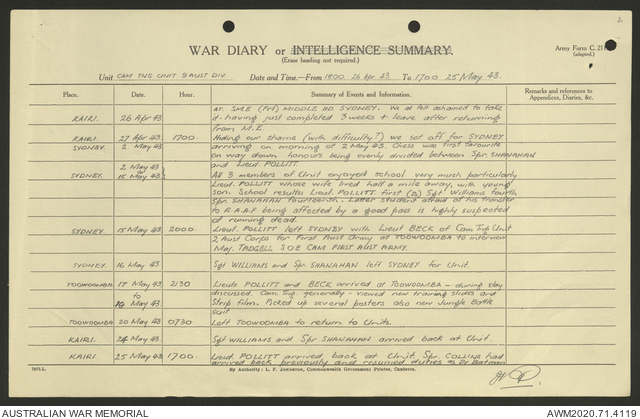 WAR DIARY or INTELLIGENCE SUMMARY.
(Erase heading not required.)
Army Form C.
(adapted.)
Unit CAM TNG UNIT 3 AUST DIV. Date and Time—From 1800 26 Apr 43. To 1700 25 May 43.
Place. Date. Hour. Summary of Events and Information. Remarks and references to Appendices, Diaries, &c.
at SME (Fwd) MIDDLE HD SYDNEY. We at all ashamed to take
KAIRI. 26 Apr 43 it having just completed 3 weeks leave after returning
from M.E.
KAIRI. 27 Apr 43 1700. Hiding our shame (with difficulty?) we set off for SYDNEY
SYDNEY 2 May 43 arriving on morning of 2 May 43. Chess was first favourite
on way down honours being evenly divided between Spr SHANAHAN
2 May 43 and Lieut. POLLITT.
SYDNEY. 15 May 43 All 3 members of Unit enjoyed school very much particularly
Lieut. POLLITT whose wife lived half a mile away, with young
son. School results: Lieut. POLLITT first Sgt Williams fourth
Spr. SHANAHAN fourteenth. Latter student afraid of his transfer
to R.A.A.F being affected by a good pass is highly suspected
of running dead.
SYDNEY 15 May 43 2000. Lieut. POLLITT left SYDNEY with Lieut BECK of Cam Tng Unit
2 Aust Corps for First Aust Army at TOOWOOMBA to interview
Maj. TADGELL S.O.E CAM FIRST AUST ARMY.
SYDNEY. 16 May 43 Sgt WILLIAMS and Spr SHANAHAN left SYDNEY for Unit.
TOOWOOMBA 17 May 43 2130 Lieuts POLLITT and BECK arrived at TOOWOOMBA - during stay
to discussed Cam. Tng. generally - viewed new training slides and
May 43 Strip film. Picked up several posters also new Jungle Battle
suit
TOOWOOMBA 20 May 43 0730 Left TOOWOOMBA to return to Units.
KAIRI. 24 May 43. Sgt WILLIAMS and Spr SHANAHAN arrived back at Unit.
KAIRI 25 May 43 1700. Lieut POLLITT arrived back at Unit. Spr. COLLINS had
arrived back previously and resumed duties as Dr Batman
By Authority: L. F. Johnston, Commonwealth Government Printer, Canberra.
AUSTRALIAN WAR MEMORIAL
AWM2020.71.4119